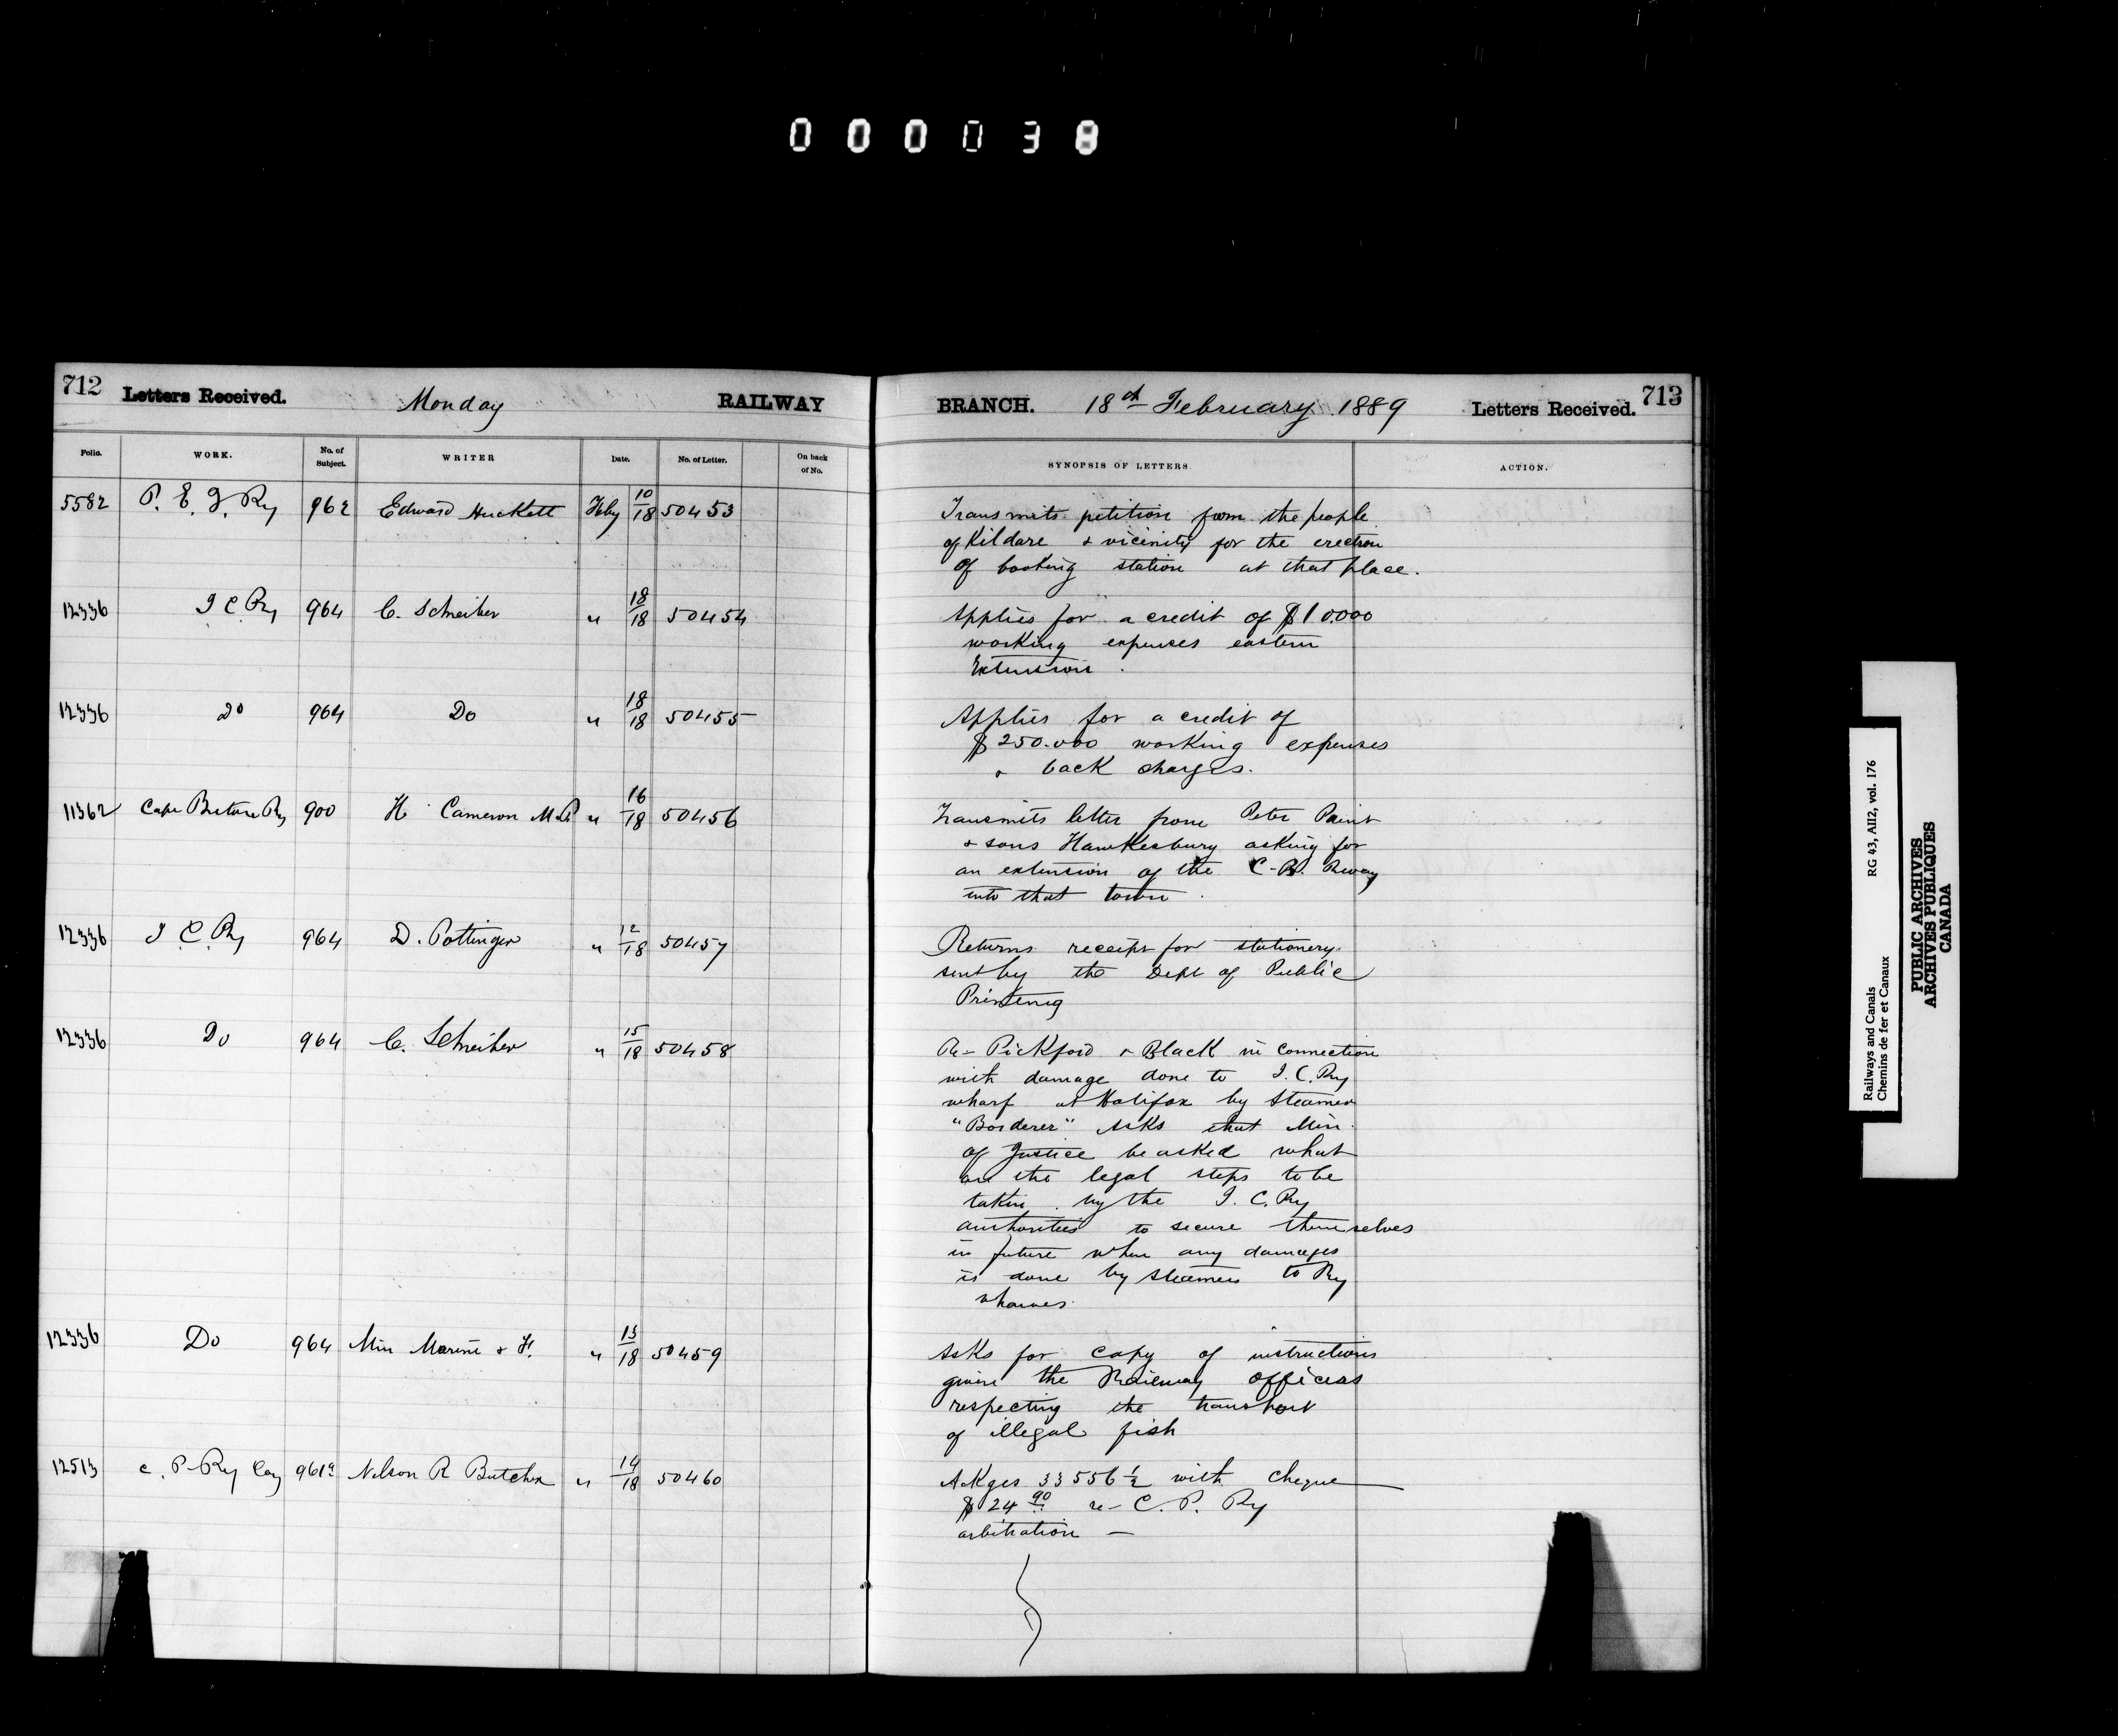 000038
712 Letters Received. Monday RAILWAY
BRANCH. 18th February 1889 Letters Received. 713
Folio. WORK. No. of Subject. WRITER Date. No. of Letter. On back of No.
SYNOPSIS OF LETTERS ACTION.
5582 P. E. I. Ry 962 Edward Hackett Feby 10/18 50453
Transmits petition from the people
of Kildare & vicinity for the erection
of booking station at that place.
12336 I C Ry 964 C. Schreiber " 18/18 50454
Applies for a credit of $10.000
working expenses eastern
Extension.
12336 Do 964 Do " 18/18 50455
Applies for a credit of
$250.000 working expenses
& back charges.
11362 Cape Breton Ry 900 H. Cameron M.P. " 16/18 50456
Transmits letter from Peter Paint
& sons Hawkesbury asking for
an extension of the C-B. Rway
into that town.
12336 I C. Ry 964 D. Pottinger " 12/18 50457
Returns receipt for stationery
sent by the Dept of Public
Printing
12336 Do 964 C. Schreiber " 15/18 50458
Re- Pickford & Black in connection
with damage done to I. C. Ry
wharf at Halifax by Steamer
"Borderer" Asks that Min.
of Justice be asked what
are the legal steps to be
taken by the I. C. Ry
authorities to secure themselves
in future when any damages
is done by steamers to Ry
wharves.
12336 Do 964 Min Marine & F. " 13/18 50459
Asks for copy of instructions
given the Railway officers
respecting the transport
of illegal fish
12513 C. P Ry Coy 961 Nelson R Butcher " 14/18 50460
Akges 33556½ with cheque
$24 90 re- C. P. Ry
arbitration —
Railways and Canals RG 43, AII2, vol. 176
Chemins de fer et Canaux
PUBLIC ARCHIVES
ARCHIVES PUBLIQUES
CANADA